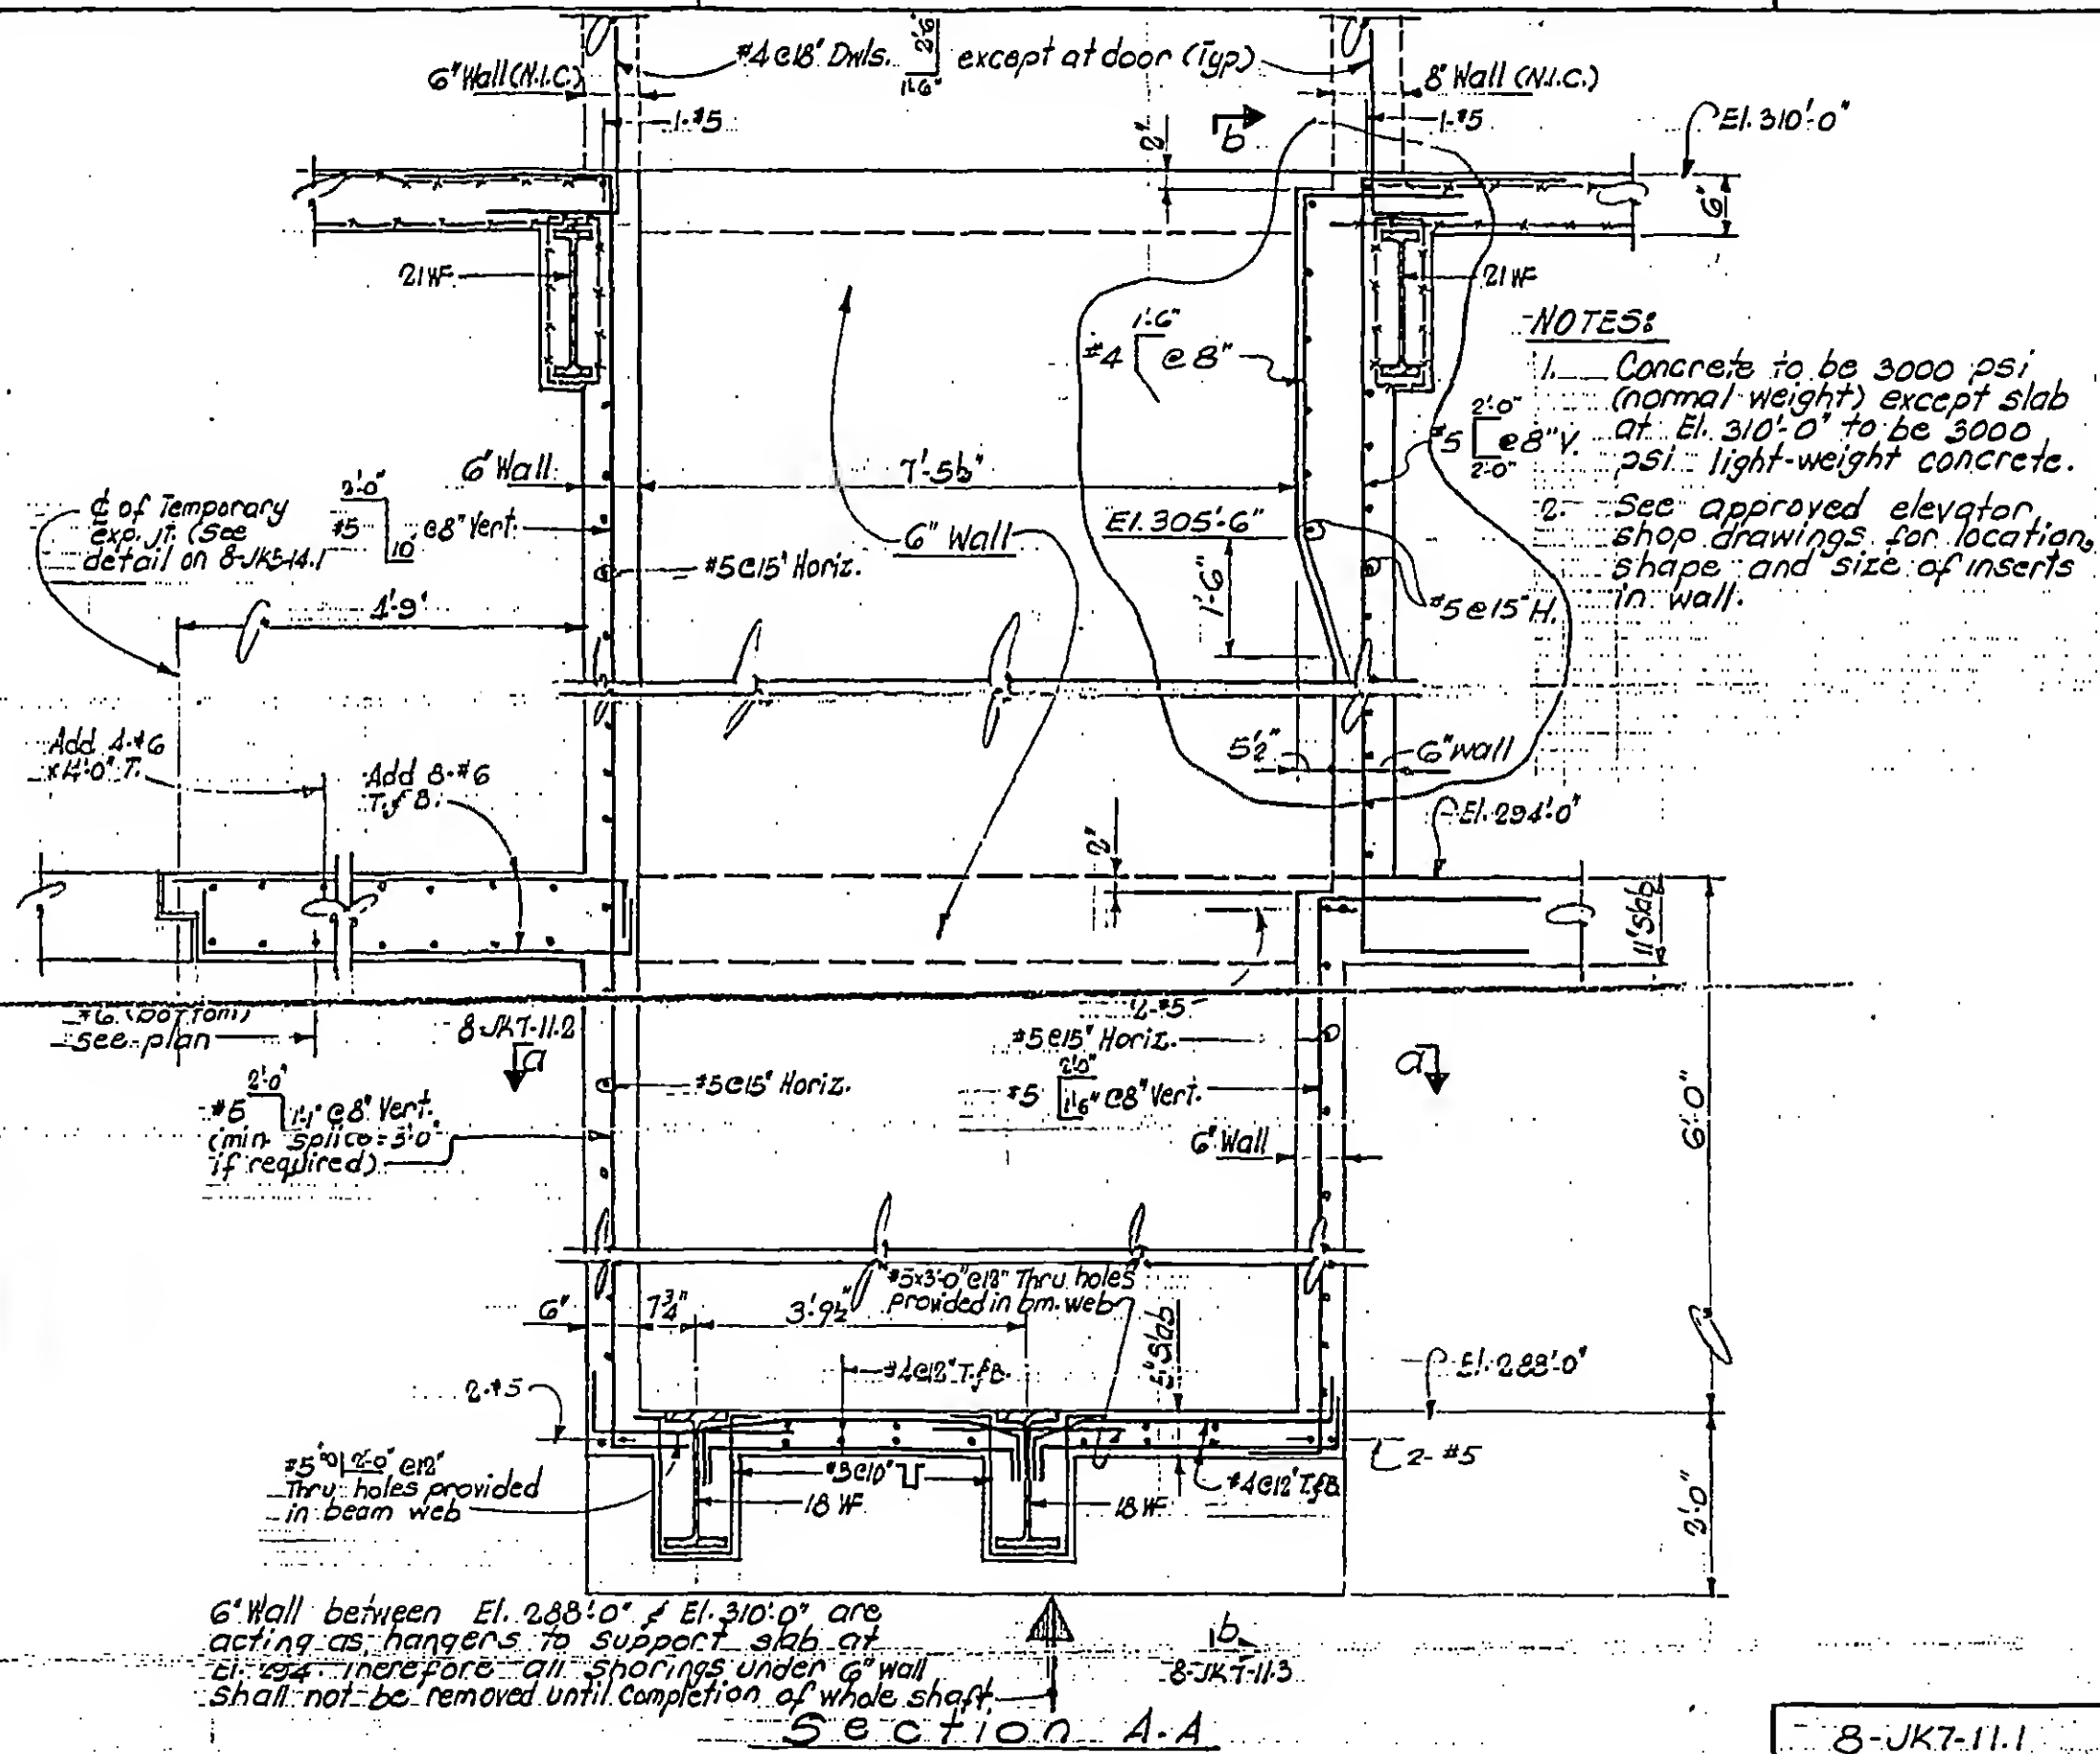 #4@18" Dwls. 2'-6 1'-6" except at door (Typ)
6" Wall (N.I.C.)
8" Wall (N.I.C.)
1-#5
1-#5
2"
b
El. 310'-0"
6"
21WF
21WF
1'-6"
#4 @ 8"
NOTES:
1. Concrete to be 3000 psi
(normal weight) except slab
at El. 310'-0" to be 3000
psi light-weight concrete.
2. See approved elevator
shop drawings for location,
shape and size of inserts
in wall.
2'-0"
#5 @ 8" V.
2'-0"
6" Wall
7'-5½"
El. 305'-6"
1'-6"
6" Wall
℄ of Temporary
exp. jt. (See
detail on 8-JK5-14.1
#5 10" @8" Vert.
#5@15" Horiz.
#5@15" H.
4'-9"
Add 4-#6
x 4'-0" T.
Add 8-#6
T.&B.
5½"
6" wall
El. 294'-0"
2"
11" Slab
2-#5
#6 (bottom)
see plan
8-JK7-11.2
a
a
#5@15" Horiz.
#5@15" Horiz.
2'-0"
#5 1'-6" @8" Vert.
2'-0"
#5 @8" Vert.
(min. splice = 3'-0"
if required)
6" Wall
6'-0"
6"
7¾"
3'-9½"
#5x3'-0"@12" Thru holes
provided in bm. web
#4@12" T.&B.
5" Slab
El. 288'-0"
2-#5
2-#5
#5 2'-0" @12"
Thru holes provided
in beam web
#3@10"
18 WF
18 WF
#4@12" T.&B
2'-0"
6" Wall between El. 288'-0" & El. 310'-0" are
acting as hangers to support slab at
El. 294. Therefore all shorings under 6" wall
shall not be removed until completion of whole shaft.
b
8-JK7-11.3
Section A-A
8-JK7-11.1